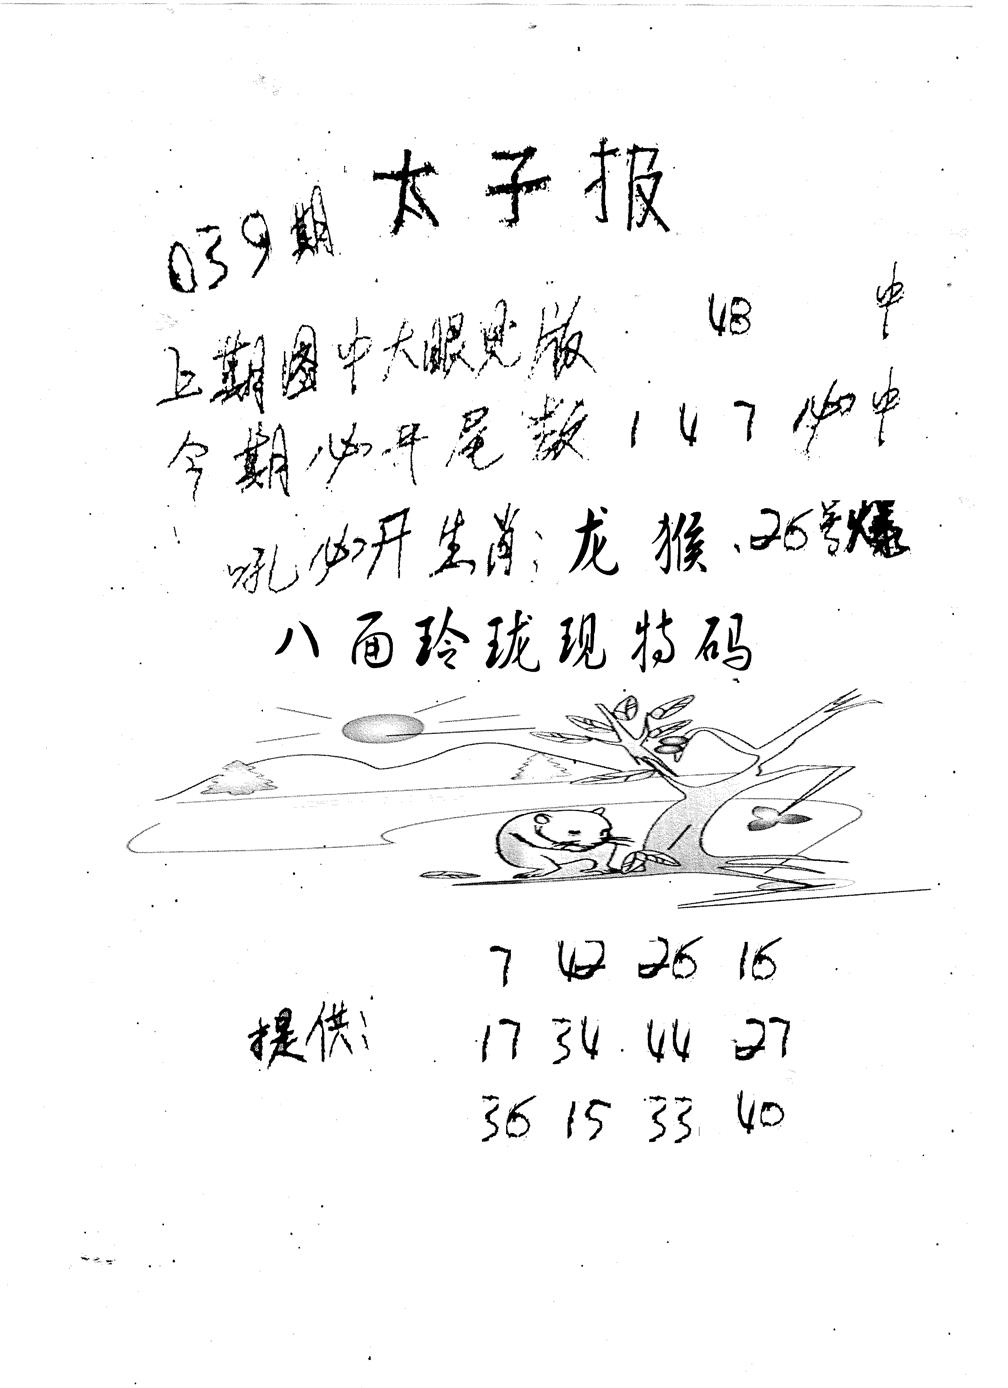 太子报
039期
上期图中大眼见版 48 中
今期必开尾数 1 4 7 必中
吼必开生肖:龙猴、26号爆
八面玲珑现特码
7 42 26 16
提供: 17 34 44 27
36 15 33 40